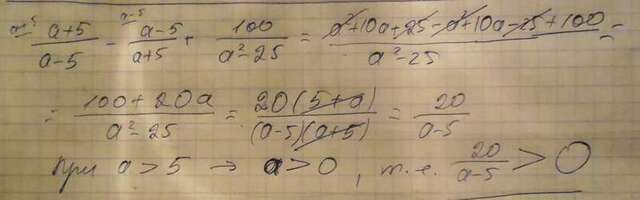 a+5 (a+5)/(a-5) - a-5 (a-5)/(a+5) + 100/(a²-25) = (a²+10a+25-a²+10a-25+100)/(a²-25) =
= (100+20a)/(a²-25) = 20(5+a)/((a-5)(a+5)) = 20/(a-5)
При a>5 → a>0, т.е. 20/(a-5) > 0